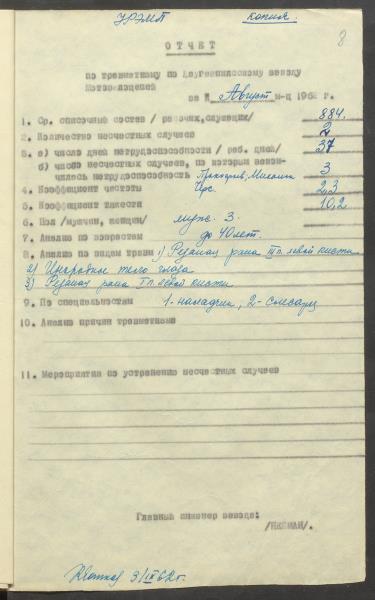 УРЭМП Копия. 8
ОТЧЕТ
по травматизму по Даугавпилсскому заводу
Мотовелоцепей
за Август м-ц 1962 г.
1. Ср. списочный состав / рабочих, служащих/ 884.
2. Количество несчастных случаев 2
3. а) число дней нетрудоспособности / раб. дней/ 37
б) число несчастных случаев, по которым
нетрудоспособность 3
4. Коэффициент частоты 2,3
5. Коэффициент тяжести 10,2
6. Пол /мужчин, женщин/ муж. 3.
7. Анализ по возрастам до 40 лет.
8. Анализ по видам травм 1) Резаная рана III п. левой кисти
2) Инородное тело глаза
3) Резаная рана I п. левой кисти
9. По специальностям 1-наладчик, 2-слесаря
10. Анализ причин травматизма
11. Мероприятия по устранению несчастных случаев
Главный инженер завода:
/НЕЙМАН/.
3/IX 62г.